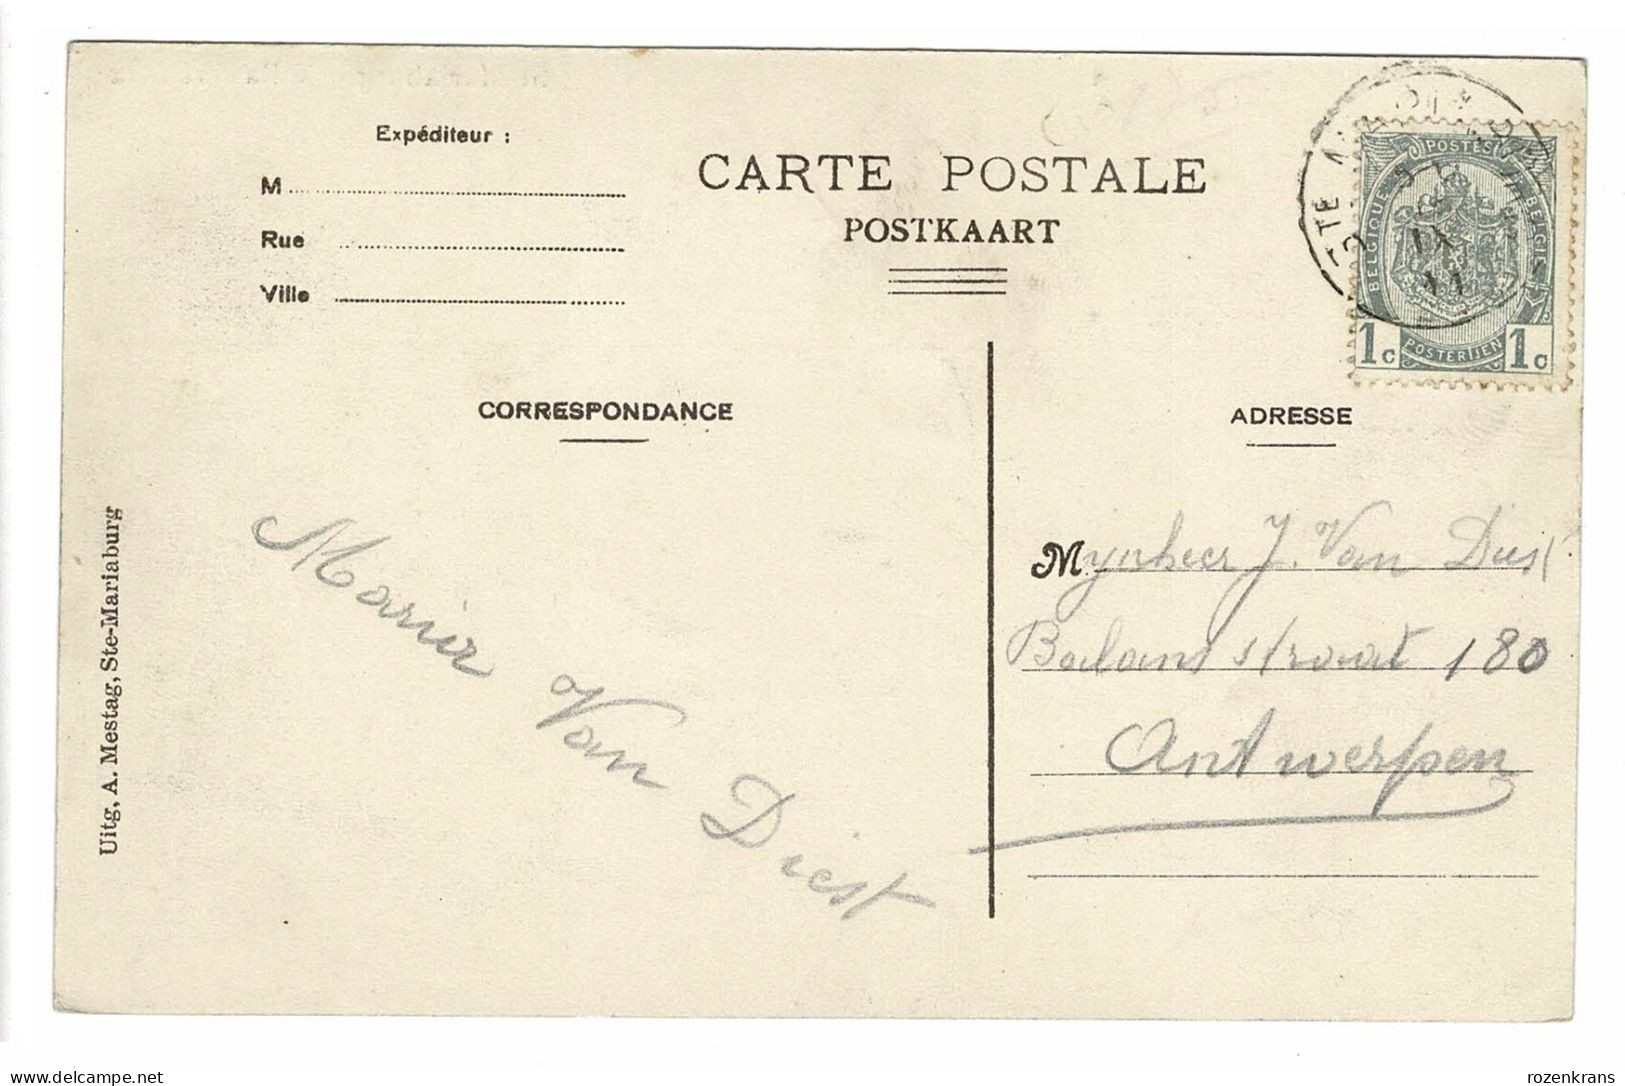 Expéditeur :
M
Rue
Ville
CARTE POSTALE
POSTKAART
POSTES
BELGIQUE
BELGIË
POSTERIJEN
1c 1c
IX
11
CORRESPONDANCE
ADRESSE
Maria
Van
Diest
Mynheer J. Van Diest
straat 180
Antwerpen
Uitg, A. Mestag, Ste-Mariaburg
delcampe.net
rozenkrans